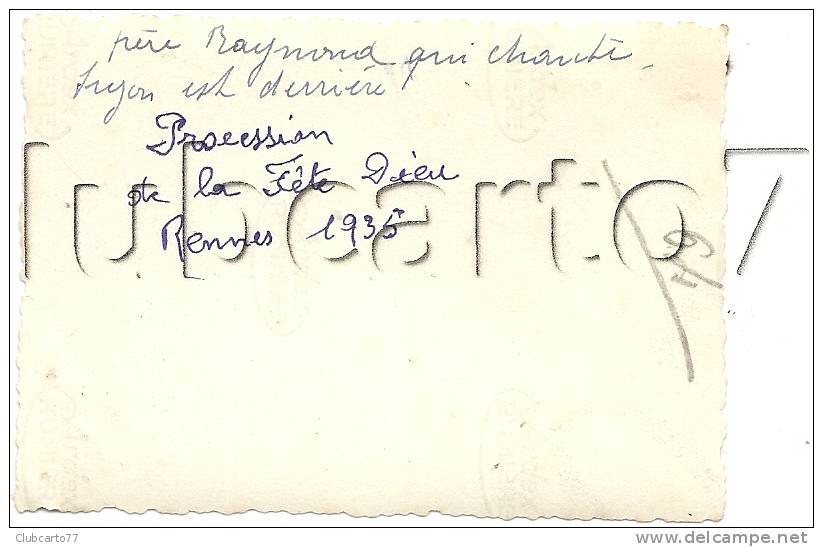 père Raymond qui chante
Suzon est derrière
Procession
de la Fête Dieu
Rennes 1935
lubcarto7
Clubcarto77
www.delcampe.net